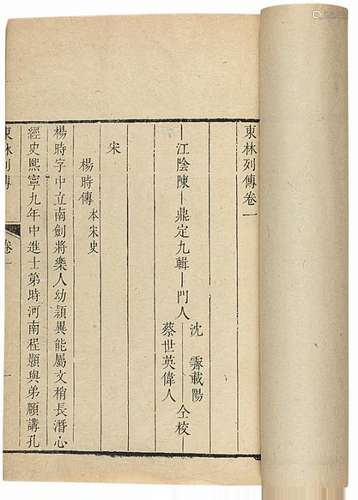 東林列傳卷一
江陰陳鼎定九輯門人
沈霽載陽
蔡世英偉人
仝校
宋
楊時傳 本宋史
楊時字中立南劍將樂人幼穎異能屬文稍長潛心
經史熙寧九年中進士第時河南程顥與弟頤講孔
東林列傳 卷一 一